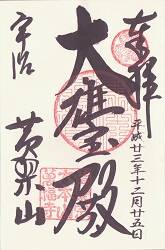 奉拝
平成廿三年十二月廿五日
大雄宝殿
宇治
黄檗山